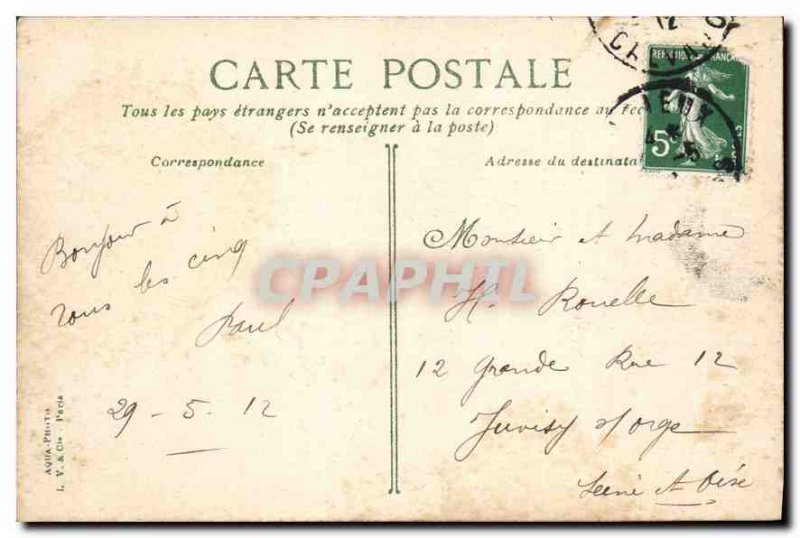 CARTE POSTALE
Tous les pays étrangers n'acceptent pas la correspondance au
(Se renseigner à la poste)
Correspondance
Adresse du destinata
REPUBLIQUE FRANC
5c
12
Bonjour à
tous les cinq
Paul
29 - 5 - 12
Monsieur et madame
H. Rouelle
12 Grande Rue 12
Juvisy s/orge
Seine et Oise
CPAPHIL
AQUA-PHOTO
L. V. & Cie - Paris